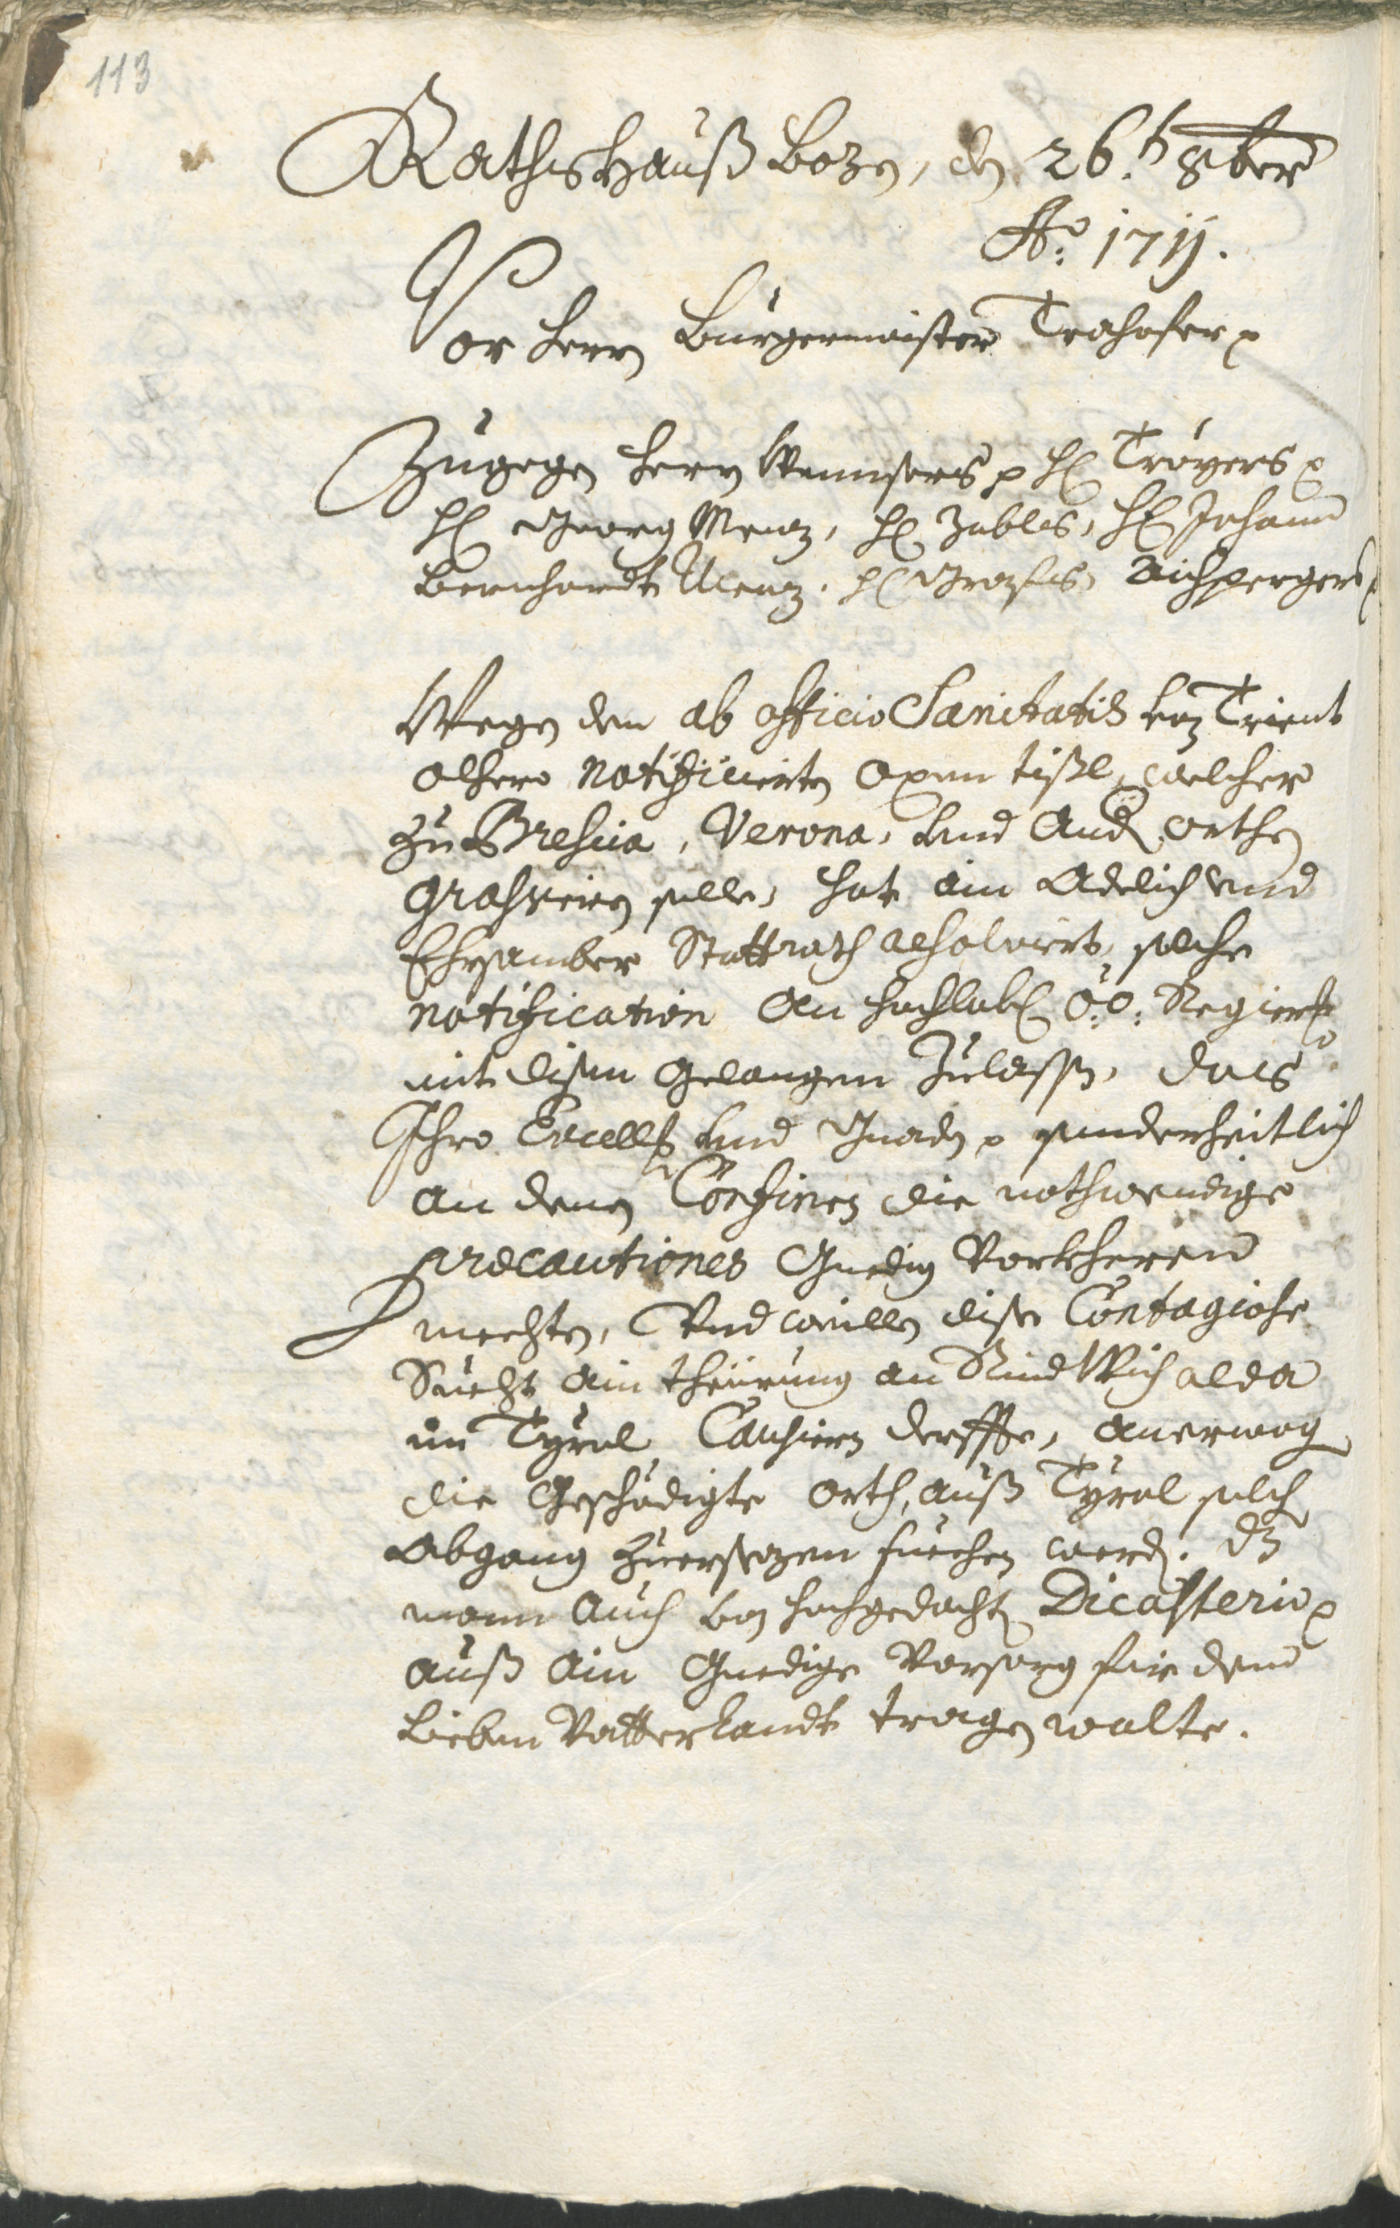 113
Rathshauß Bozn, den 26.t 8ber
Ao: 1711.
Vor Herrn Burgermaister Trahofer p
Zugegen Herrn Wenusers p H: Troyers p
H: Georg Menz, H: Zabls, H: Johann
Bernhardt Menz, H: Grafls, Aichpergers p
Wegen dem ab officio Sanitatis von Trient
alhero notificierten Oxen tißl, welcher
zu Brescia, Verona, und And: orthen
grassiern solle, hat ain Adelich und
Ehrsamber Stattrath resolviert, solche
notification an hochlobl: O: Ö: Regierung
mit disem gelangen zulassen, das
Ihro Excell: und Gnaden p sonderheitlich
an denen Confinen die nothwendige
precautiones Gnedig Vorkheren
mechten, Und weillen dise Contagiose
Sucht ain theürung an Rind Vich alda
im Tyrol Causiern derffte, anerwog
die Geschädigte orth, auß Tyrol solch
Abgang zuersezen suechen werd: dz
mann auch von hochgedacht: Dicasterio p
auß ain Gnedige Vorsorg für dem
Lieben Vatterlandt tragen wolte.